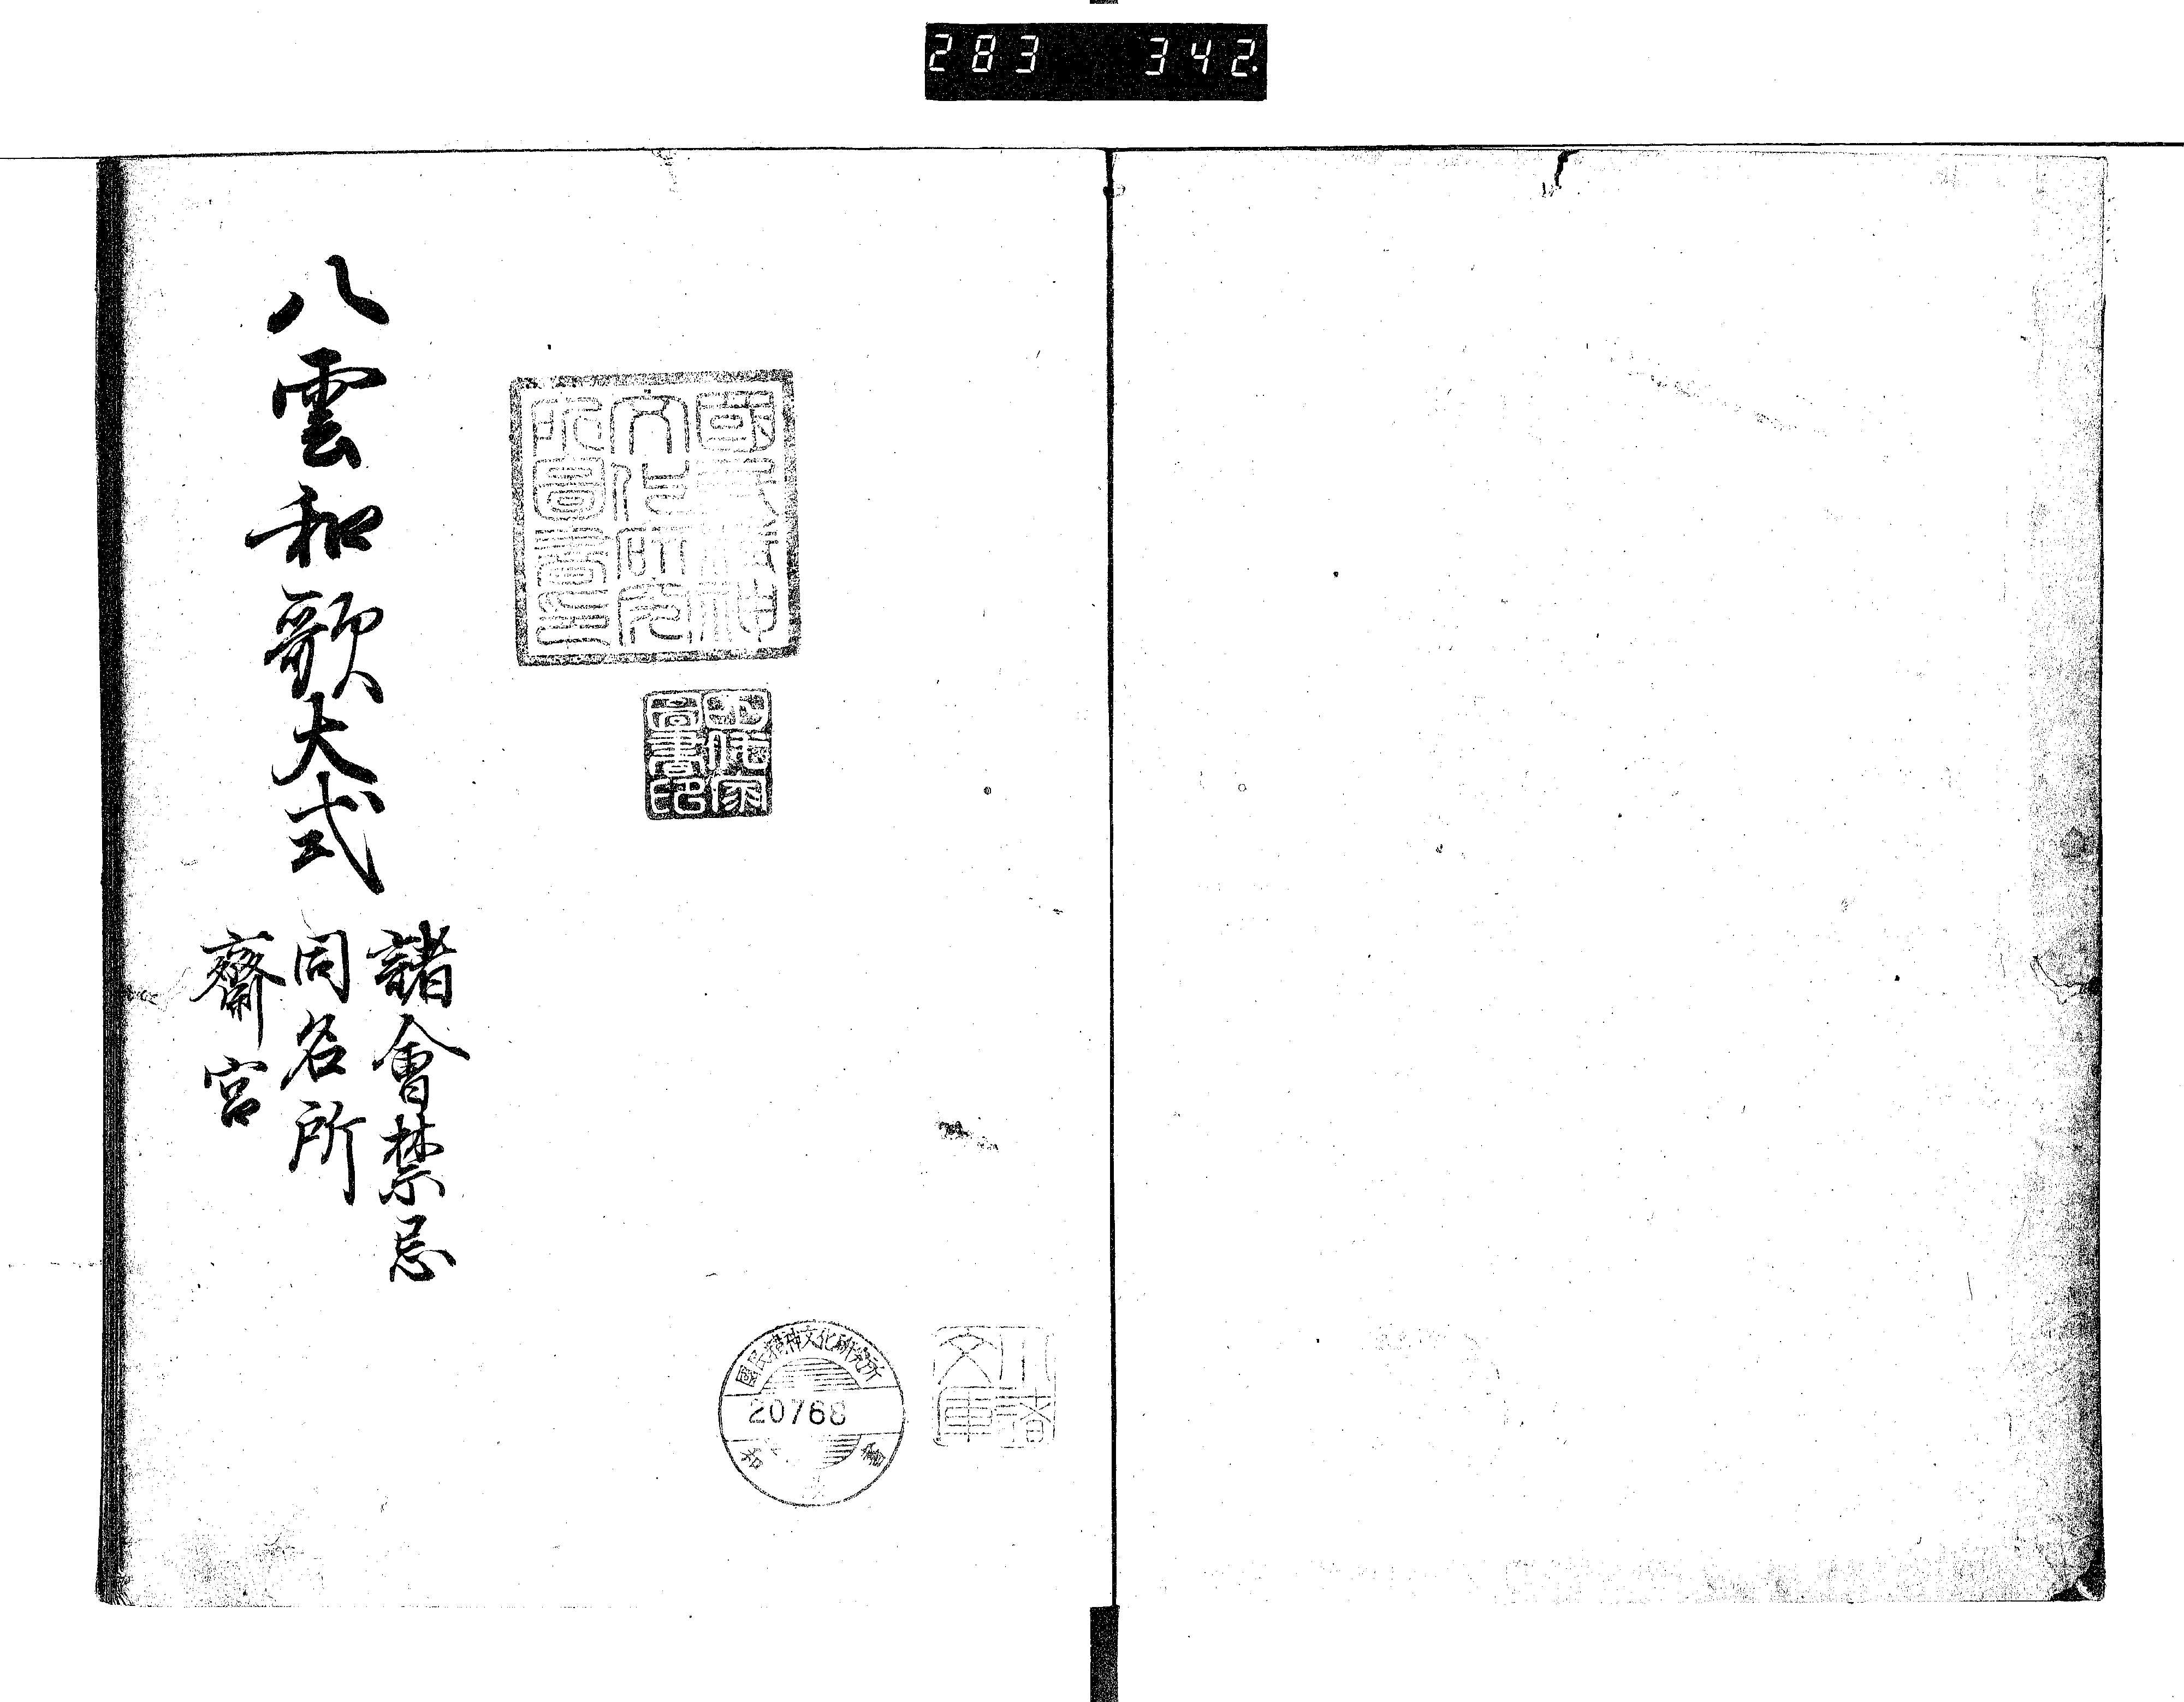 283 342
國民精神
文化研究
所圖書印
圖書印
國民精神文化研究所
20768
文庫
八雲和歌大式
諸會禁忌
同名所
齋宮